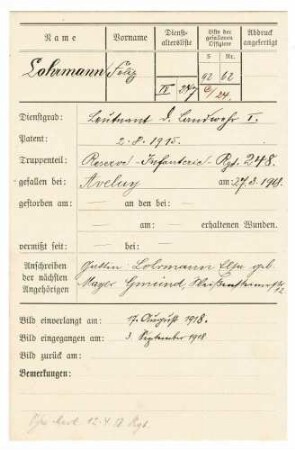 Name Vorname Dienst-altersliste Liste der gefallenen Offiziere Abdruck angefertigt
S Nr.
Lohrmann Felix IV 247 92 62
6/24.
Dienstgrad: Leutnant d. Landwehr I.
Patent: 2.8.1915.
Truppenteil: Reserve-Infanterie-Rgt. 248.
gefallen bei: Aveluy am: 27.3.1918.
gestorben am: — an den bei: —
— am: — erhaltenen Wunden.
vermißt seit: — bei: —
Anschreiben der nächsten Angehörigen
Gattin Lohrmann Elsa geb.
Mayer Gmünd,
Bild einverlangt am: 17. August 1918.
Bild eingegangen am: 3. September 1918
Bild zurück am:
Bemerkungen:
12.4.18